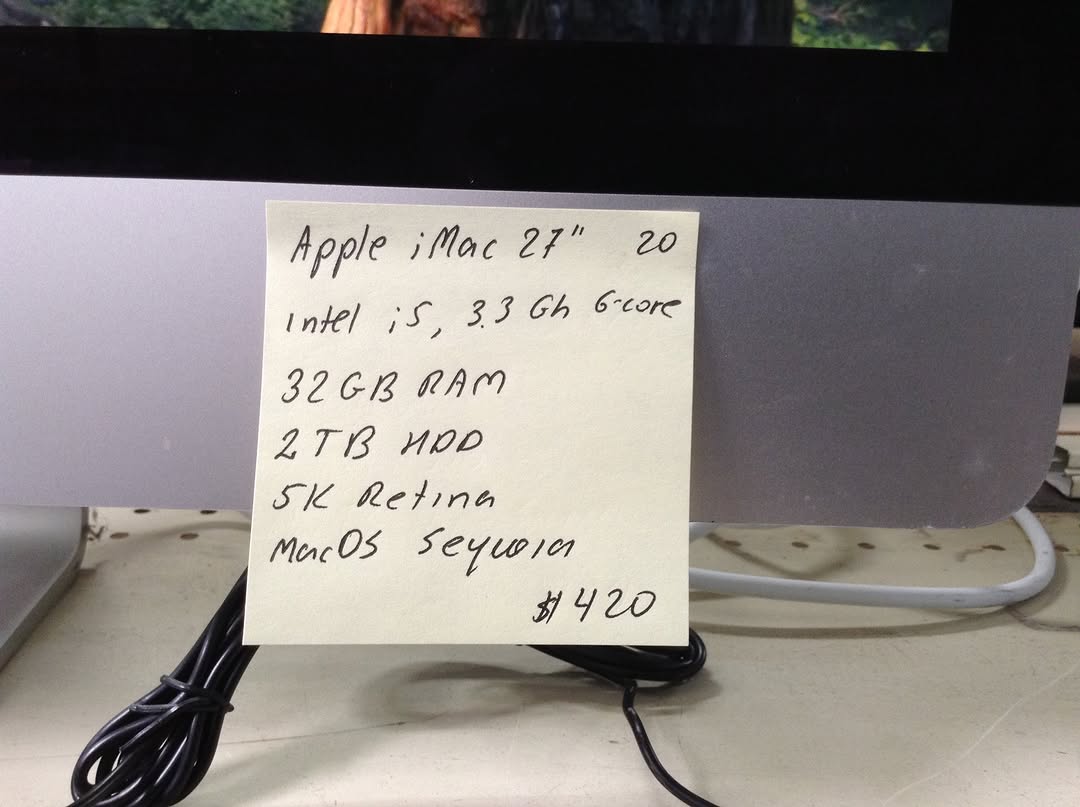 Apple iMac 27" 20
intel i5, 3.3 Gh 6-core
32 GB RAM
2 TB HDD
5K Retina
MacOS Seyuoia
$420